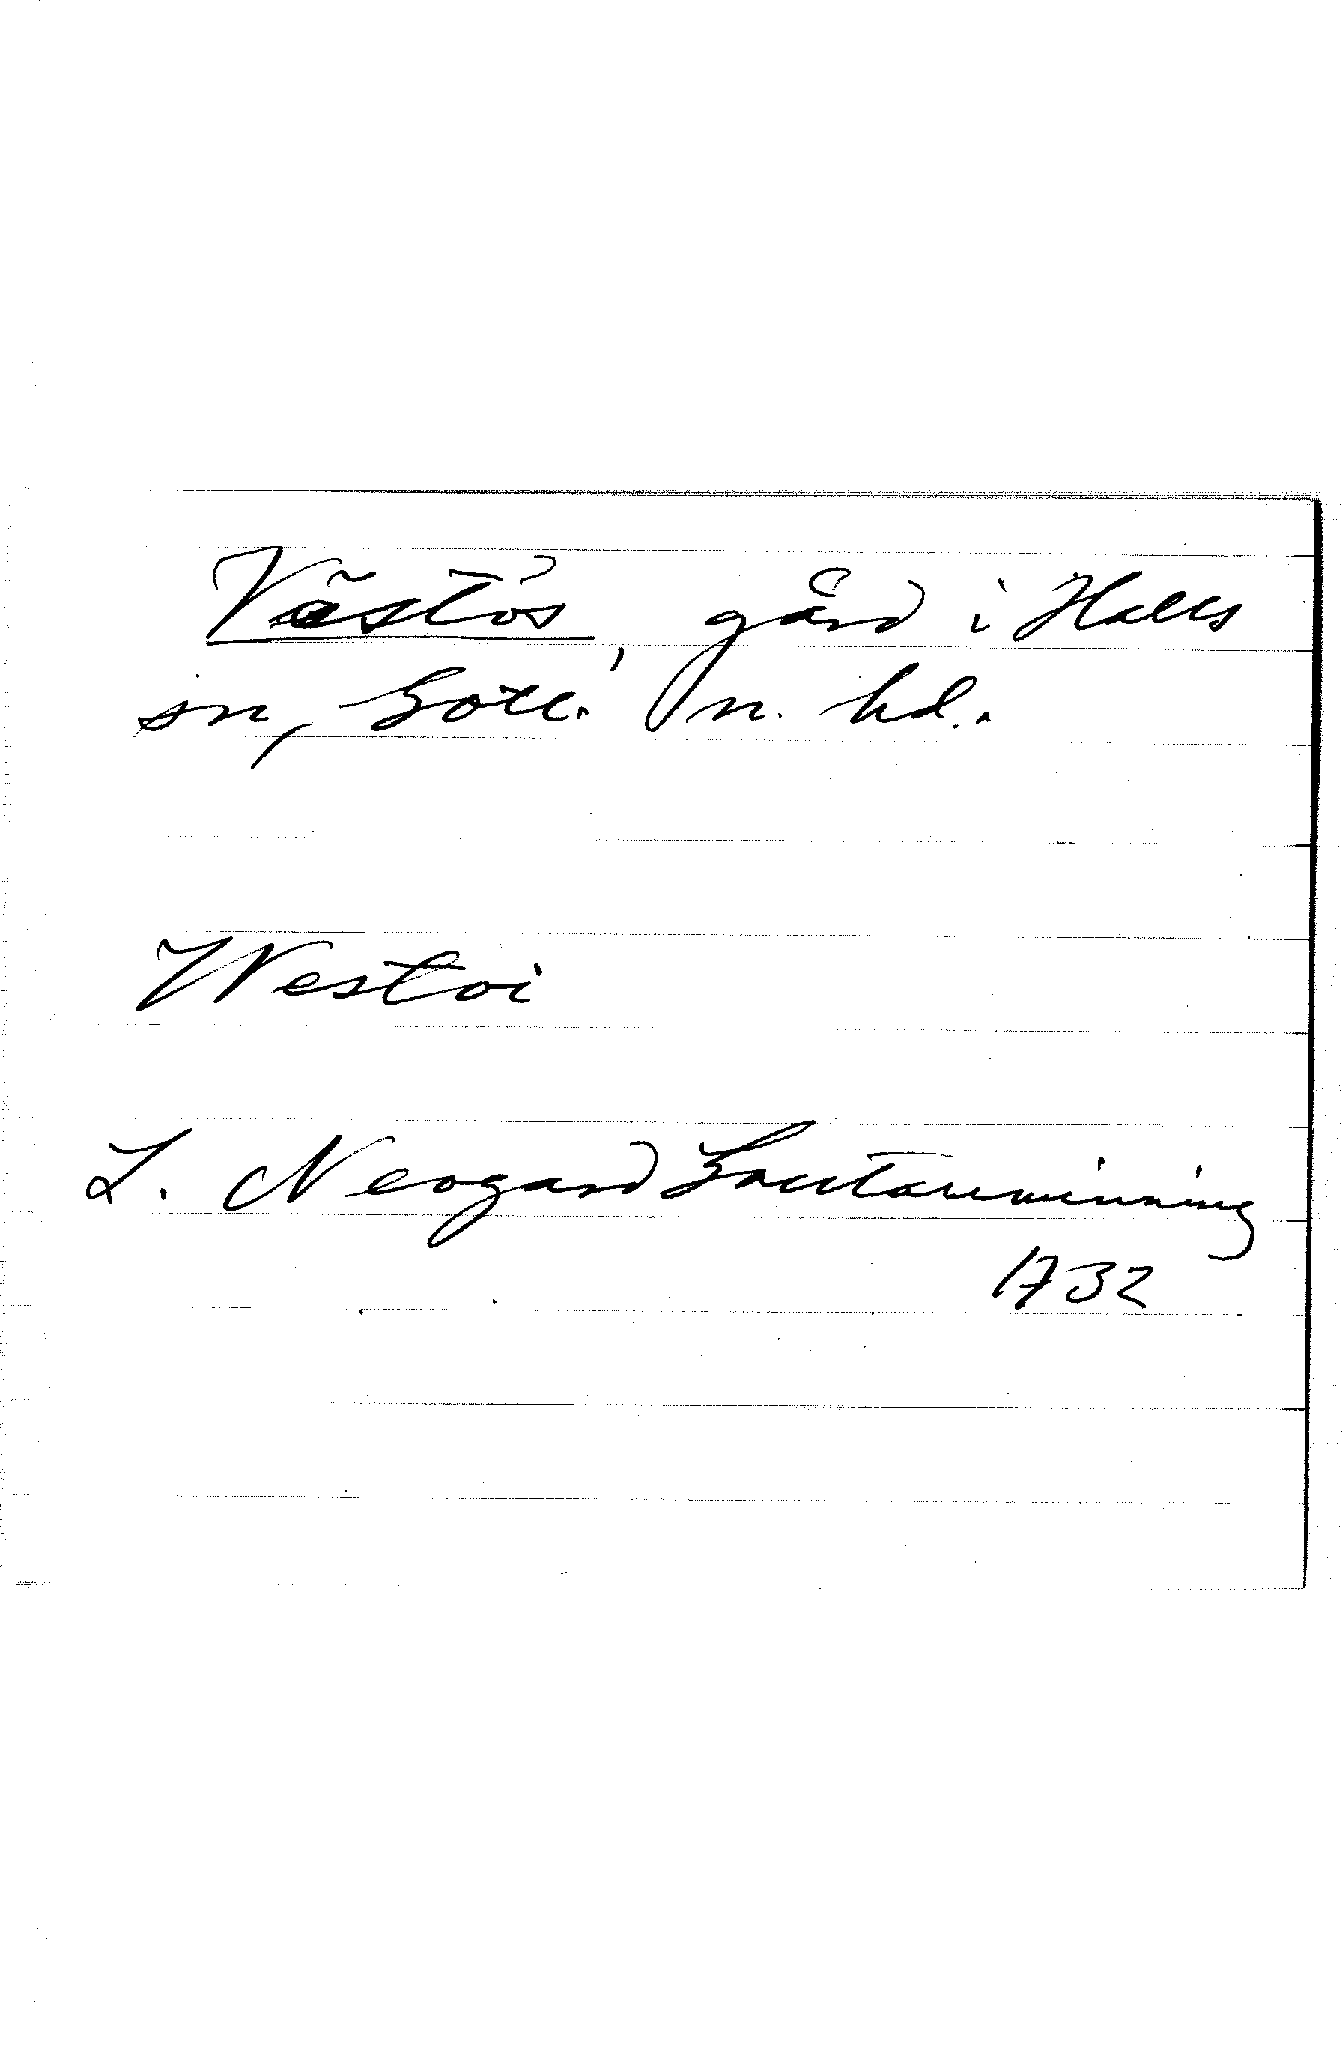 Västös, gård i Halls
sn, Gotl. n. hd.
Westoi
L. Neogard Gautaminning
1732